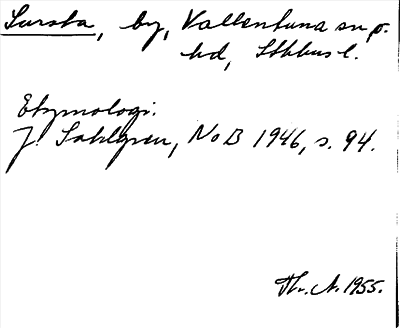 Sursta, by, Vallentuna sn o.
hd, Sthlms l.
Etymologi.
J. Sahlgren, NoB 1946, s. 94.
Th. A. 1955.